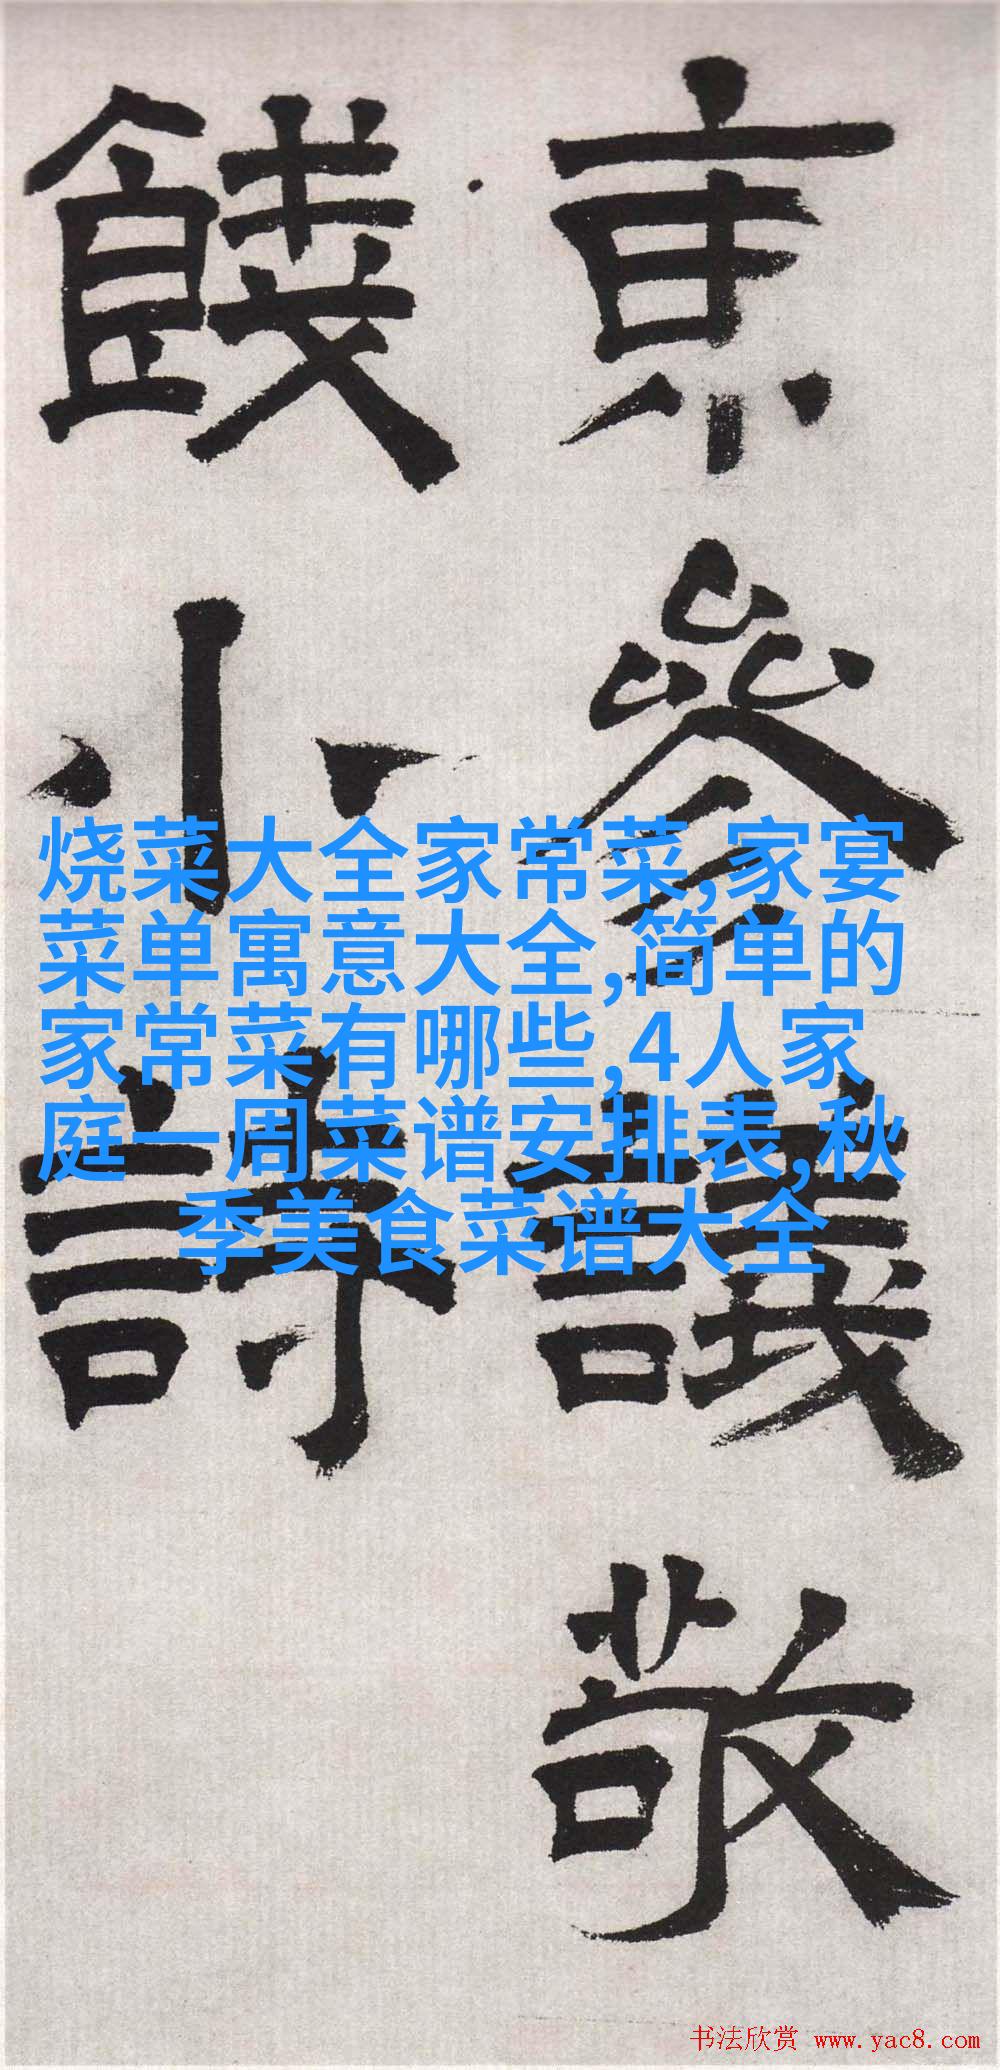 京參議敬
餞小詩
烧菜大全家常菜,家宴
菜单寓意大全,简单的
家常菜有哪些,4人家
庭一周菜谱安排表,秋
季美食菜谱大全
书法欣赏 www.yac8.com